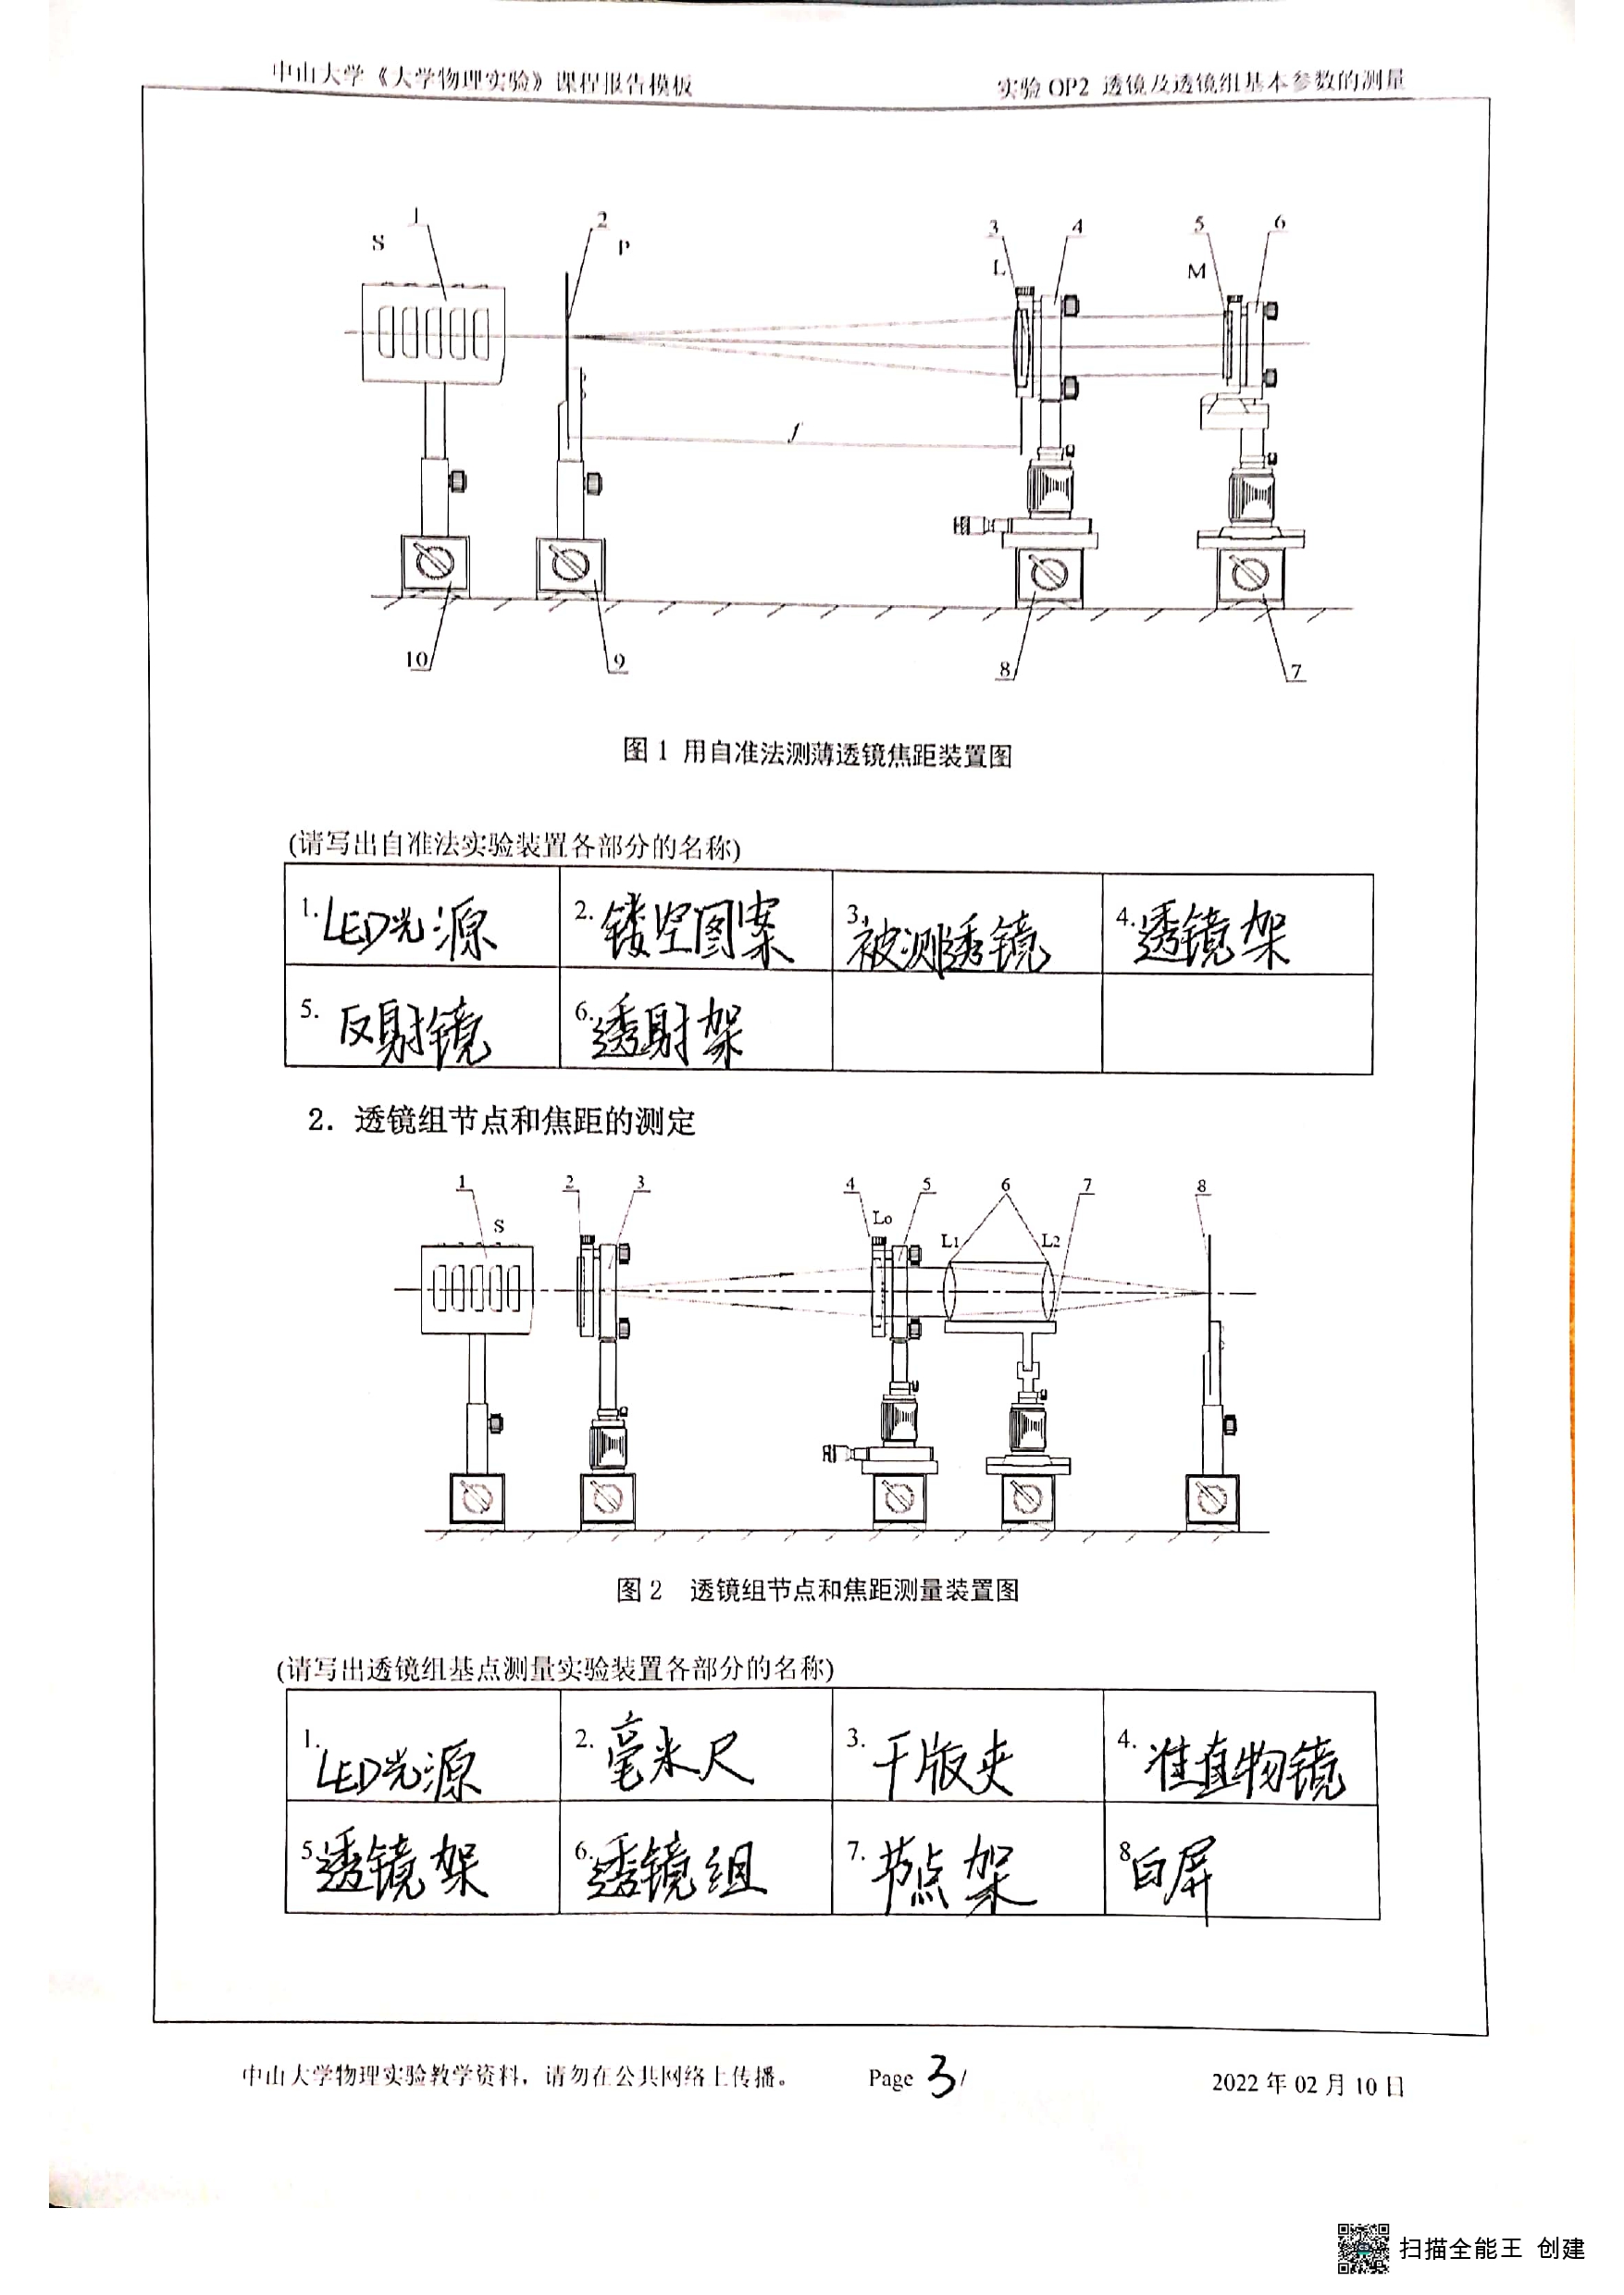 中山大学《大学物理实验》课程报告模板 实验 OP2 透镜及透镜组基本参数的测量
1 2 3 4 5 6
S P L M
f
10 9 8 7
图 1 用自准法测薄透镜焦距装置图
(请写出自准法实验装置各部分的名称)
1. LED光源 2. 镂空图案 3. 被测透镜 4. 透镜架
5. 反射镜 6. 透射架
2. 透镜组节点和焦距的测定
1 2 3 4 5 6 7 8
S Lo L1 L2
图 2 透镜组节点和焦距测量装置图
(请写出透镜组基点测量实验装置各部分的名称)
1. LED光源 2. 毫米尺 3. 干版夹 4. 准直物镜
5. 透镜架 6. 透镜组 7. 节点架 8 白屏
中山大学物理实验教学资料，请勿在公共网络上传播。 Page 3 / 2022 年 02 月 10 日
扫描全能王 创建